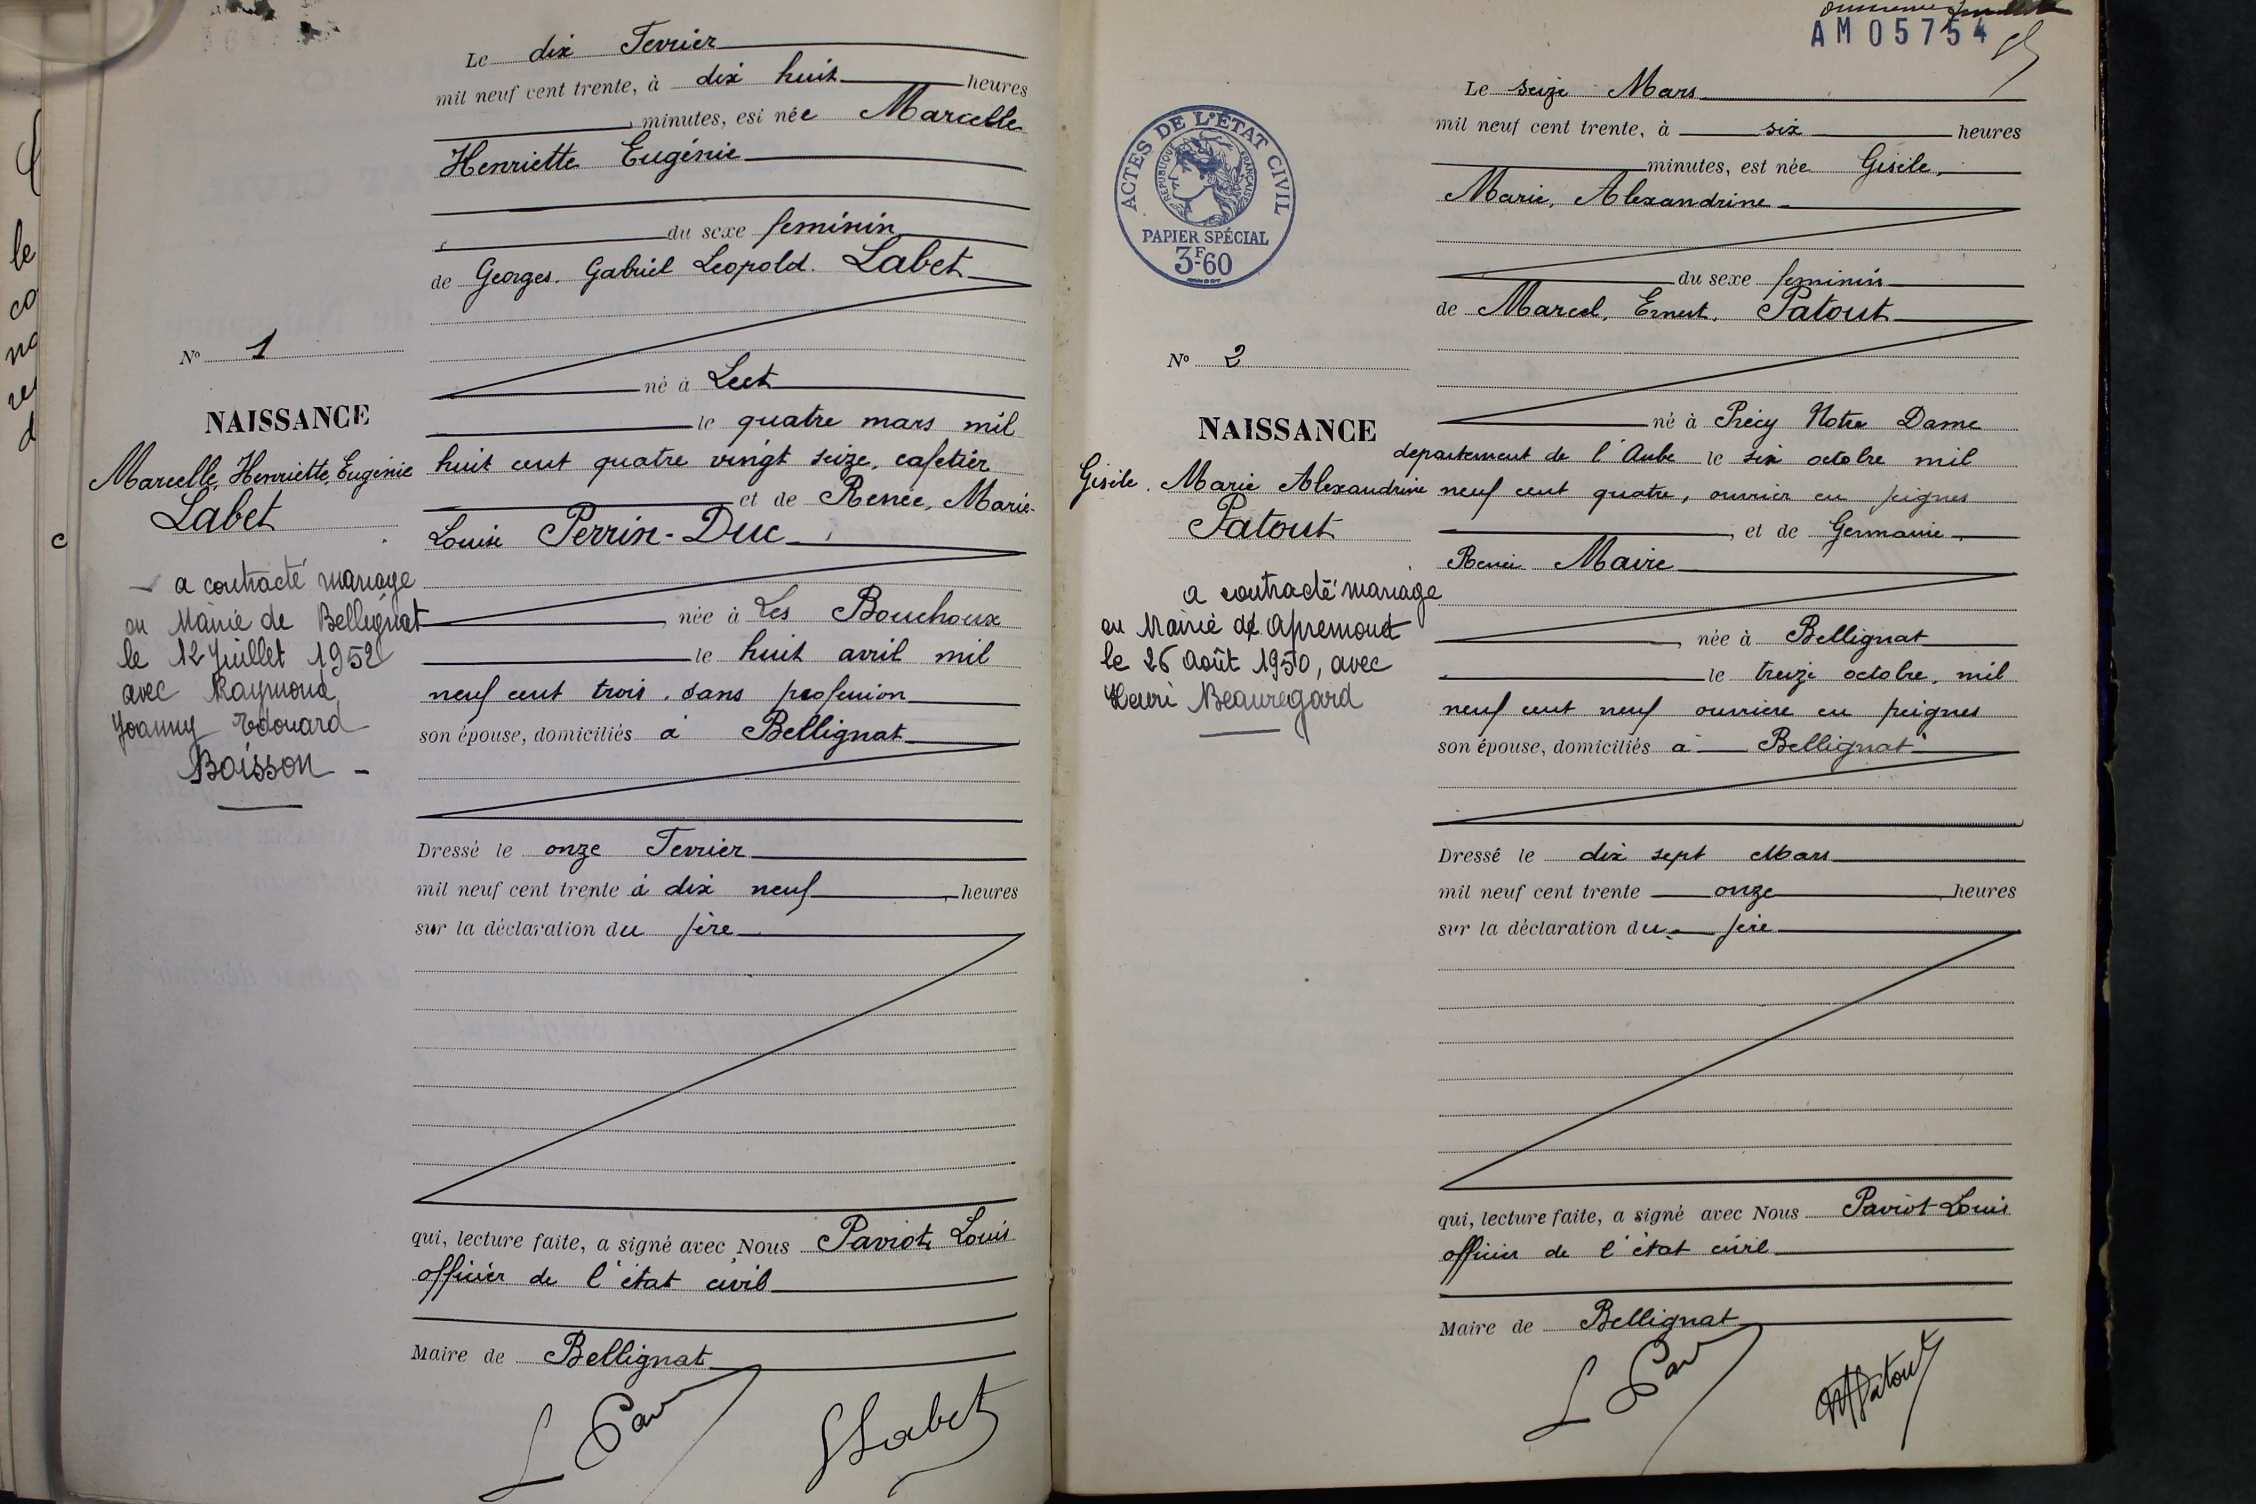 Le dix Fevrier
mil neuf cent trente, à dix huit heures
minutes, est née Marcelle
Henriette Eugénie
du sexe feminin
de Georges. Gabriel Leopold. Labet
né à Lect
le quatre mars mil
huit cent quatre vingt seize, cafetier
et de Renée, Marie-
Louise Perrin-Duc
née à Les Bouchoux
le huit avril mil
neuf cent trois. sans profession
son épouse, domiciliés à Bellignat
Dressé le onze Fevrier
mil neuf cent trente à dix neuf heures
sur la déclaration du père
qui, lecture faite, a signé avec Nous Paviot Louis
officier de l'état civil
Maire de Bellignat
L Pav
GLabet
N° 1
NAISSANCE
Marcelle, Henriette, Eugénie
Labet
a contracté mariage
en Mairie de Bellignat
le 12 Juillet 1952
avec Raymond
Joanny Edouard
Boisson
le
co
no
d
AM 05754
ACTES DE L'ÉTAT CIVIL
RÉPUBLIQUE FRANÇAISE
PAPIER SPÉCIAL
3F-60
Le seize Mars
mil neuf cent trente, à six heures
minutes, est née Gisèle,
Marie, Alexandrine
du sexe feminin
de Marcel, Ernest, Patout
né à Précy Notre Dame
departement de l'Aube le six octobre mil
neuf cent quatre, ouvrier en peignes
et de Germaine,
Renée Maire
née à Bellignat
le treize octobre, mil
neuf cent neuf ouvriere en peignes
son épouse, domiciliés à Bellignat
Dressé le dix sept Mars
mil neuf cent trente onze heures
sur la déclaration du père
qui, lecture faite, a signé avec Nous Paviot Louis
officier de l'état civil
Maire de Bellignat
L Pav
MPatout
N° 2
NAISSANCE
Gisèle. Marie Alexandrine
Patout
a contracté mariage
en Mairie de Apremont
le 26 Août 1950, avec
Henri Beauregard